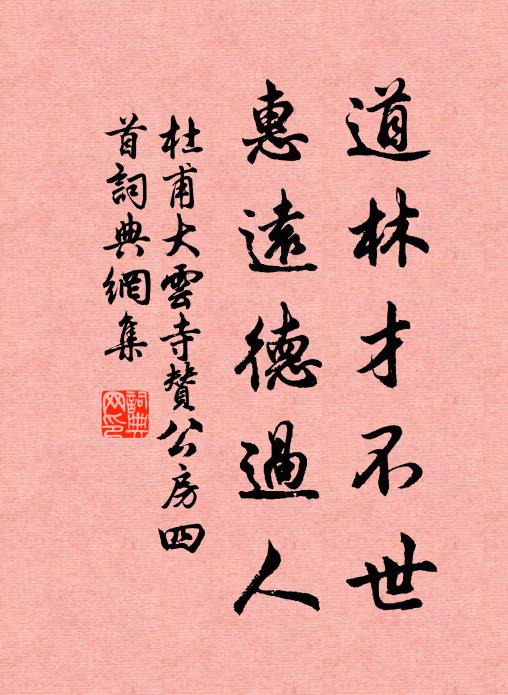 道林才不世
惠遠德過人
杜甫大雲寺贊公房四
首詞典網集
詞典
网印